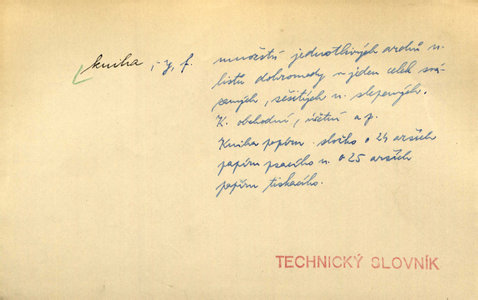 kniha, -y, f. množství jednotlivých archů n.
listů dohromady v jeden celek svá-
zaných, sešitých n. slepených.
K. obchodní, účetní a p.
Kniha papíru složka o 24 arších
papíru psacího n. o 25 arších
papíru tiskacího.
TECHNICKÝ SLOVNÍK